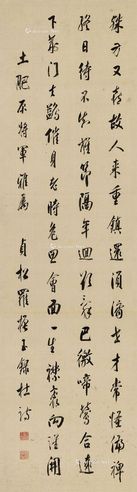 殊方又喜故人來重鎮還須濟世才常怪偏裨
終日待不知旌節隔年迴欲辭巴徼啼鶯合遠
下荊門去鷁催身老時危思會面一生襟袌向誰開
土肥原將軍雅屬 貞松羅振玉錄杜詩